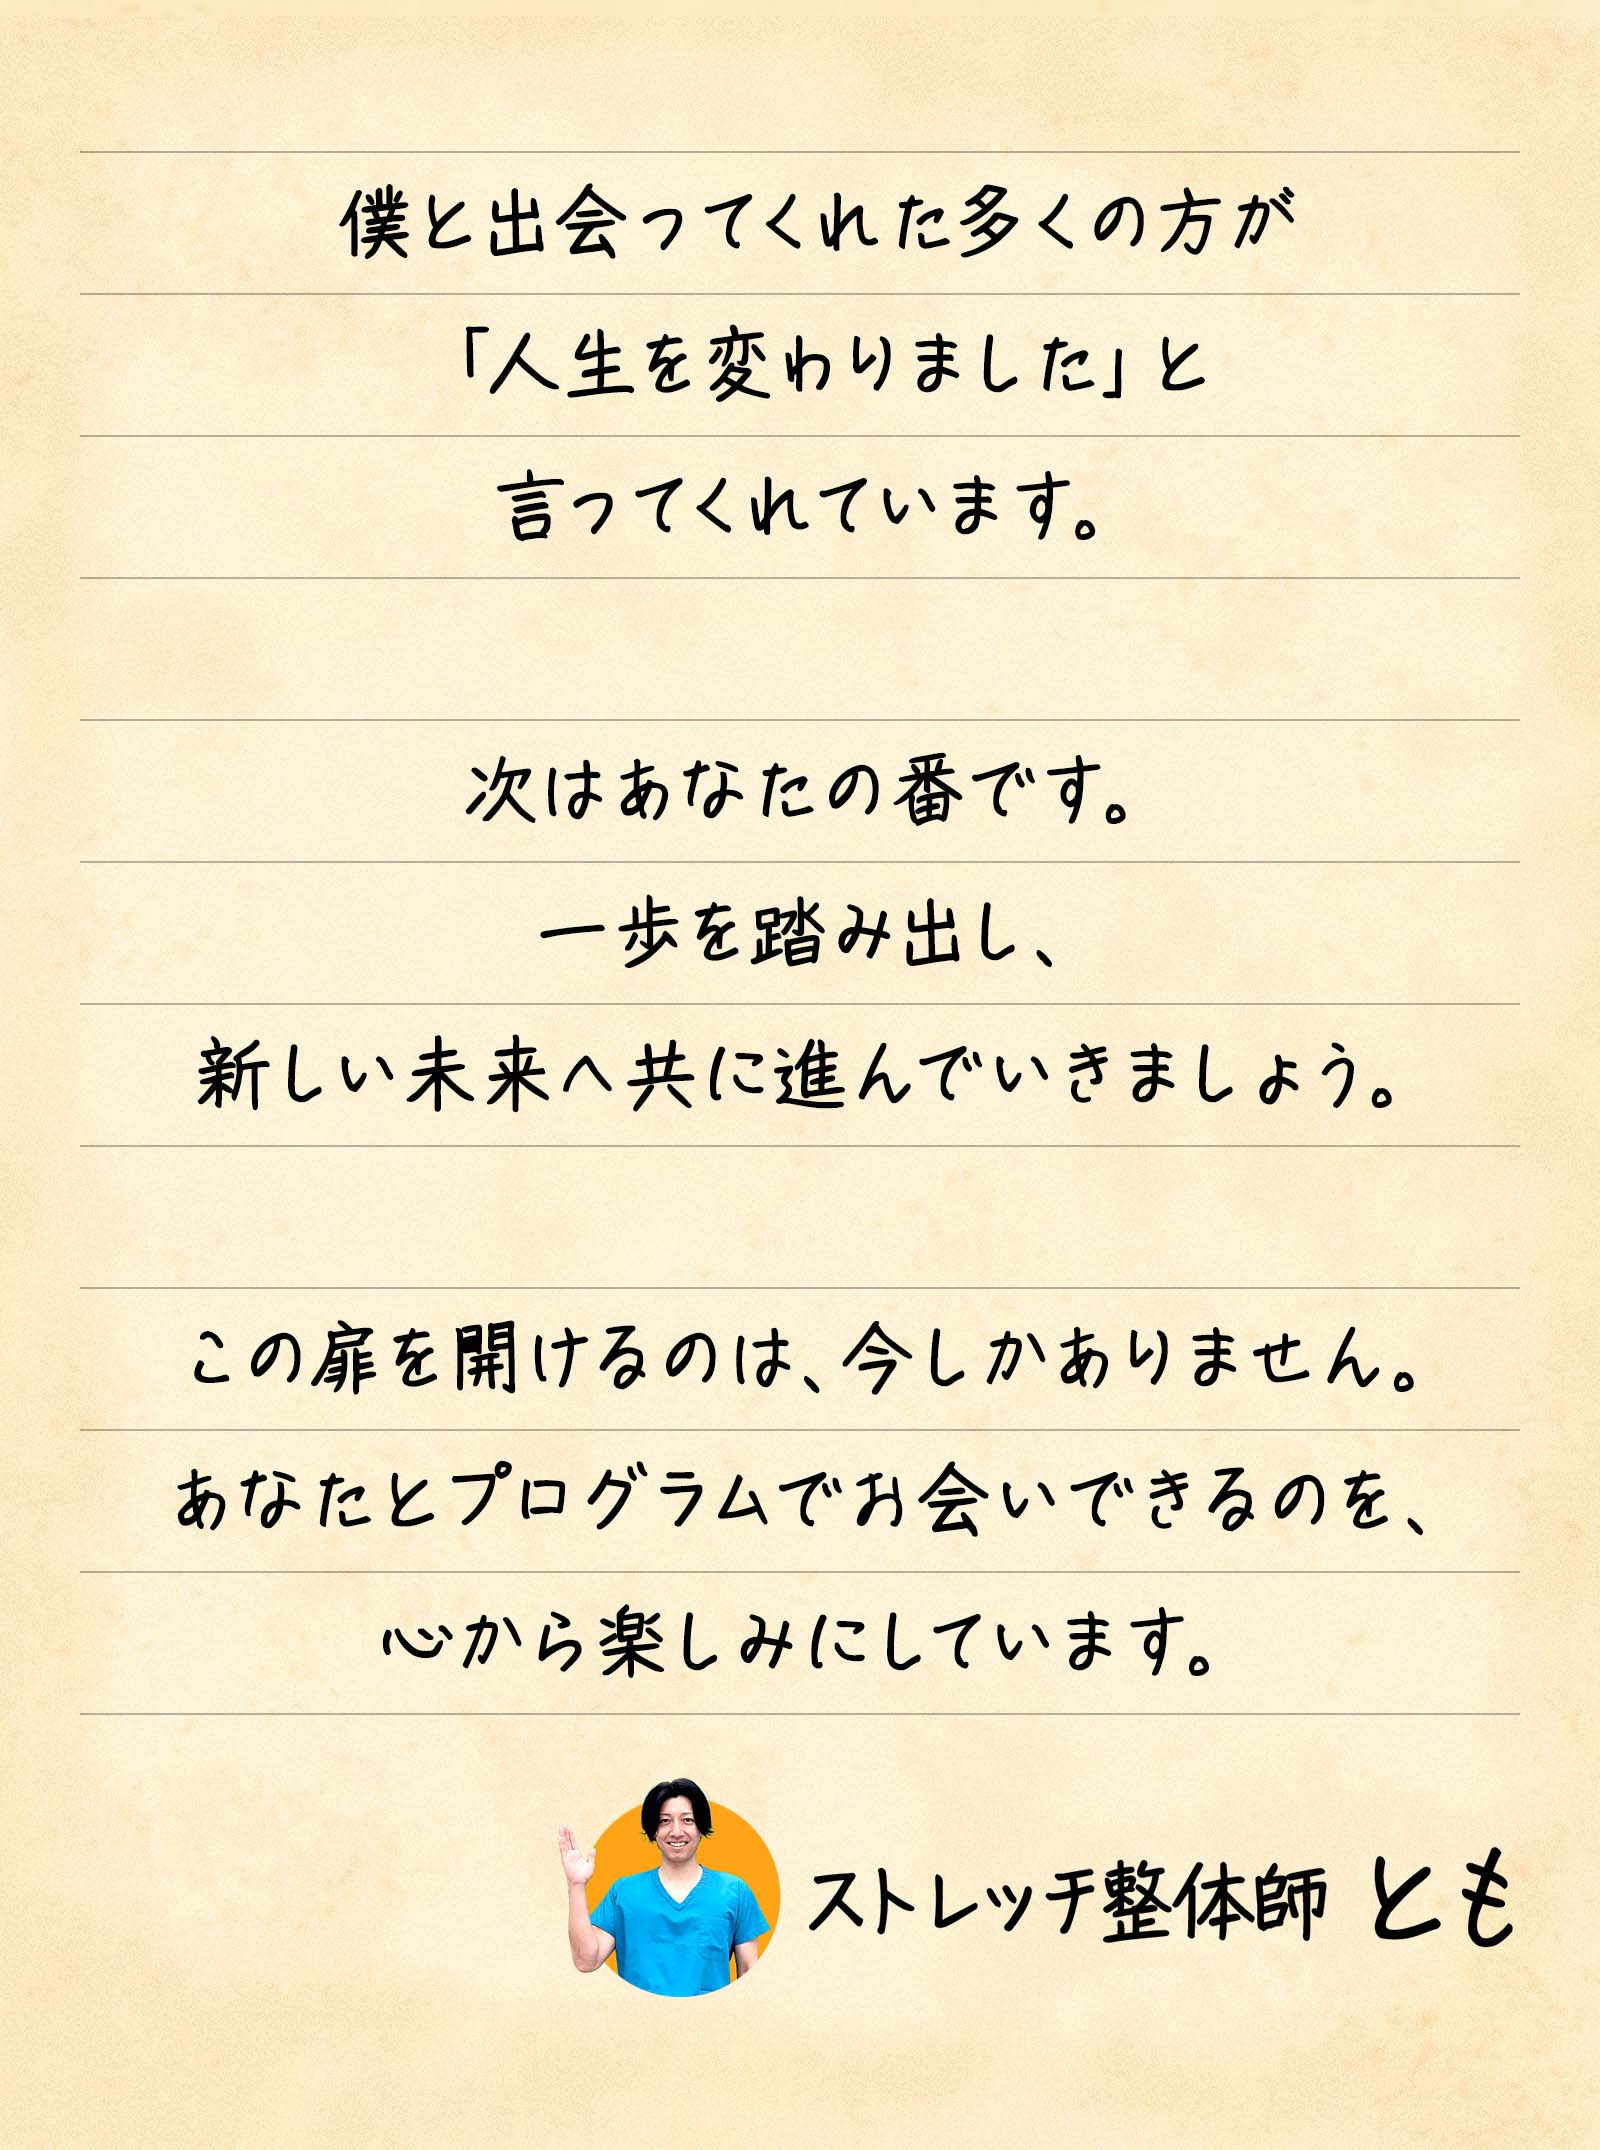 僕と出会ってくれた多くの方が
「人生を変わりました」と
言ってくれています。
次はあなたの番です。
一歩を踏み出し、
新しい未来へ共に進んでいきましょう。
この扉を開けるのは、今しかありません。
あなたとプログラムでお会いできるのを、
心から楽しみにしています。
ストレッチ整体師 とも